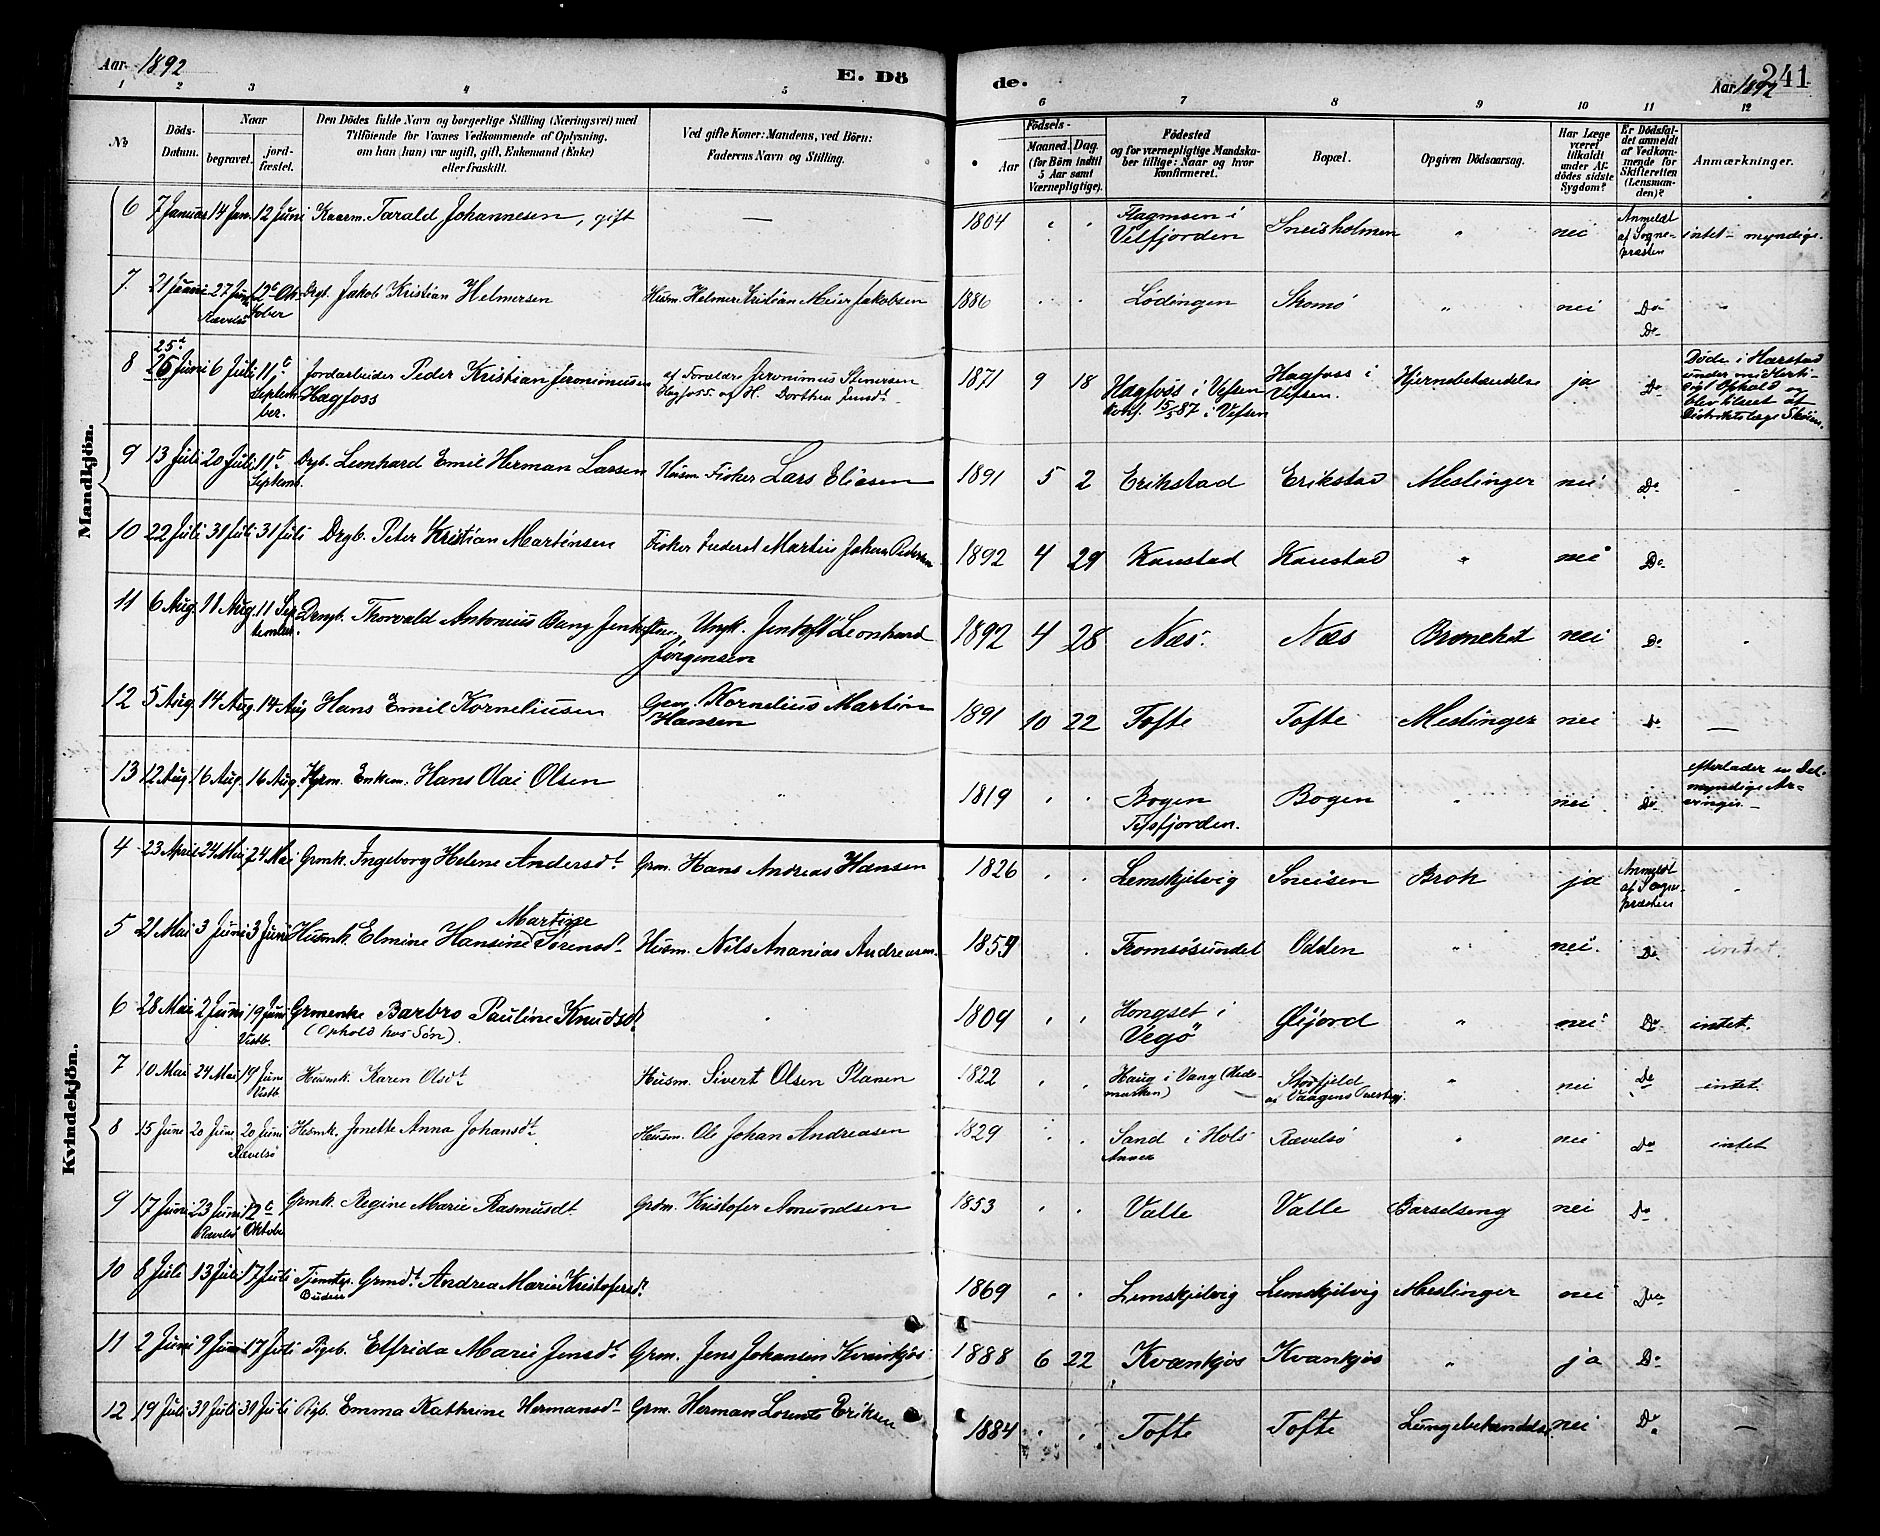 Aar 1892 E. Dö
1 2 3 4 5
No Döds-Datum. Naar begravet. jord-fæstet. Den Dödes fulde Navn og borgerlige Stilling (Næringsvei) med Tilföiende for Voxnes Vedkommende af Oplysning, om han (hun) var ugift, gift, Enkemand (Enke) eller fraskilt. Ved gifte Koner: Mandens, ved Börn: Faderens Navn og Stilling.
Mandkjön.
6 7 Januar 14 Jan. 12 Juni Kaarm. Tarald Johannesen, gift —
7. 21 Juni 27 Juni Rævelsø 12te Oktober Drgb. Jakob Kristian Helmersen Husm. Helmer Kristian Meier Jakobsen
8 25t 26 Juni 6 Juli 11te September. Jordarbeider Peder Kristian Jeronimussen Hagfoss af Forældre Jeronimus Stenersen Hagfoss og H. Dorthea
9 13 Juli 20 Juli 11te Septemb. Drgb. Leonhard Emil Herman Larsen Husm. Fisker Lars Eliesen
10 22 Juli 31 Juli 31 Juli Drgb. Peter Kristian Martinsen Fisker Martin Johan Pedersen
11 6 Aug. 11 Aug. 11 September. Drngb. Thorvald Antonius Bang Jentoftsen Ungk. Jentoft Leonhard Jørgensen
12 5 Aug. 14 Aug. 14 Aug Hans Emil Korneliusen Grm. Kornelius Martin Hansen
13 12 Aug. 16 Aug. 16 Aug. Enkem. Hans Olai Olsen "
Kvindekjön.
4 23 April 24 Mai 24 Mai Grmk. Ingeborg Helene Andersdt Grm. Hans Andreas Hansen
5 21 Mai 3 Juni 3 Juni Husmk. Elmine Hansine Martine Sørensdt. Husm. Nils Ananias Andreasen
6 28 Mai 2 Juni 19 Juni Vestb. Grmenke Barbro Pauline Knudsdt (Ophold hos Søn). "
7 10 Mai 24 Mai 19 Juni Vestb Husmk. Karen Olsdt Husm. Sivert Olsen Planen
8 15 Juni 20 Juni 20 Juni Rævelsø Husmk. Jonette Anna Johansdt. Husm. Ole Johan Andreasen
9 17 Juni 23 Juni Rævelsø 12te Oktober Grmk. Regine Marie Rasmusdt. Grdm. Kristofer Amundsen
10 8 Juli 13 Juli 17 Juli Tjenstep. Grmdt. Andrea Marie Kristofersdt.
11 2 Juni 9 Juni 17 Juli Pigeb. Elfrida Marie Jensdt. Grm. Jens Johansen Kvænkjøs
12 19 Juli 31 Juli 31 Juli Pigb. Emma Kathrine Hermansdt. Grm. Herman Lorents Eriksen
de. Aar 1892 241
6 7 8 9 10 11 12
Födsels- Aar Maaned. Dag. (for Börn indtil 5 Aar samt Værnepligtige). Födested og for værnepligtige Mandskaber tillige: Naar og hvor konfirmeret. Bopæl. Opgiven Dödsaarsag. Har Læge været tilkaldt under Afdödes sidste Sygdom? Er Dödsfaldet anmeldt af Vedkommende for Skifteretten (Lensmanden)? Anmærkninger.
1804 " " Flagmsen i Velfjorden Sneisholmen " nei Anmeldt af Sognepræsten intet - myndige.
1886 " " Lødingen Skomø " nei Do "
1871 9 18 Hagfoss i Vefsen Konf. 15/5 87 i Vefsen Hagfoss i Vefsen. Hjernebetændelse ja Do Døde i Harstad under midlertidigt Ophold og blev tilseet af Distriktslæge
1891 5 2 Erikstad Erikstad Meslinger nei Do "
1892 4 29 Kanstad Kanstad " nei Do
1892 4 28 Næs. Næs Bronchit nei Do "
1891 10 22 Tofte Tofte Meslinger nei Do —
1819 " " Bogen Tysfjorden. Bogen " nei Do efterlader en Del myndige Arvinger. —
1826 " " Lemskjelvig Sneisen Brok ja Anmeldt af Sognepræsten "
1859 " Tromsøsundet Odden " nei. Do intet.
1809 " " Hongset i Vegø Øijord " nei Do intet.
1822 " " Haug i Vang (Hedemarken) Storfjeld nei Do intet.
1829 " " Sand i Hols Annex Rævelsø " nei Do intet
1853 " " Valle Valle Barselseng nei Do
1869 " " Lemskjelvig Lemskjelvig Meslinger nei Do
1888 6 22 Kvænkjøs Kvænkjøs " ja Do
1884 " " Tofte Tofte Lungebetændelse nei Do —